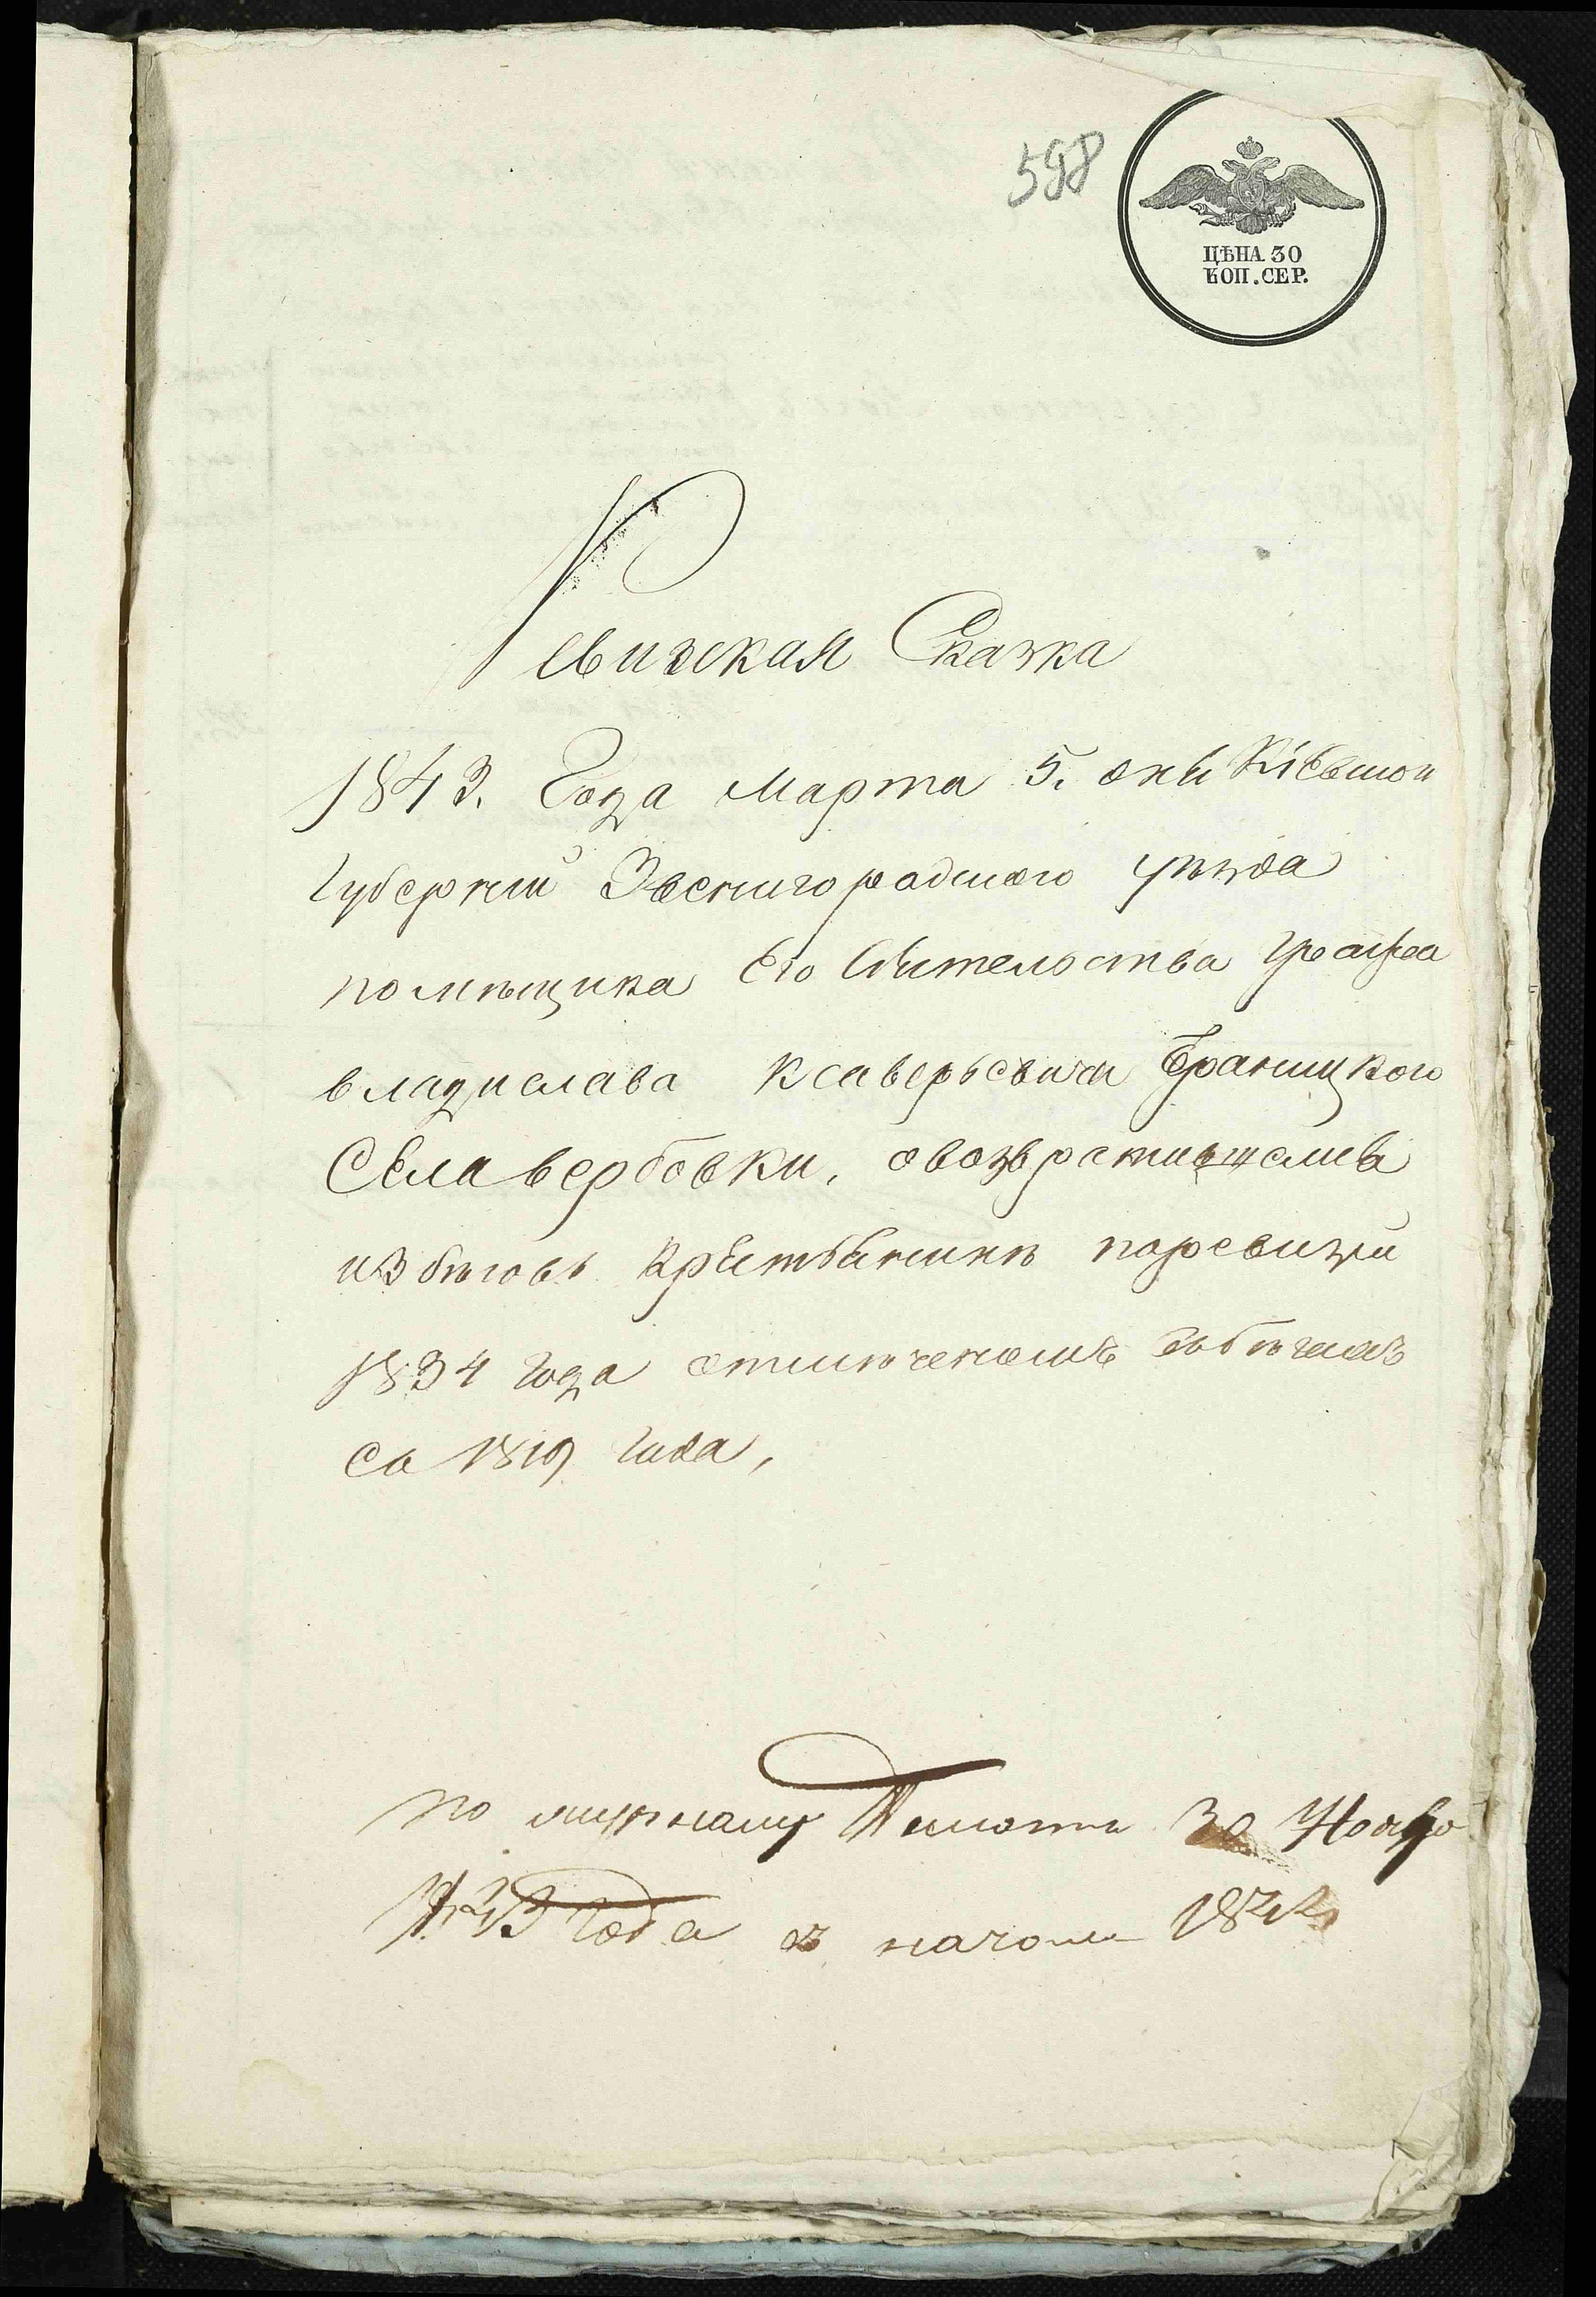 598
ЦѢНА 30
КОП. СЕР.
Ревизская Сказка
1843. Года Марта 5. дня Кіевской
Губерніи Звенигородского уѣзда
помѣщика Его Сіятельства Графа
владислава Ксаверьевича Браницкого
Села вербовки, овозвратившемся
избѣговъ Крестьянинѣ поревизіи
1834 Года отмѣченомъ вбѣгахъ
съ 1819 Года,
по журналу Палаты 30 Ноября
1843 Года с начала 1844